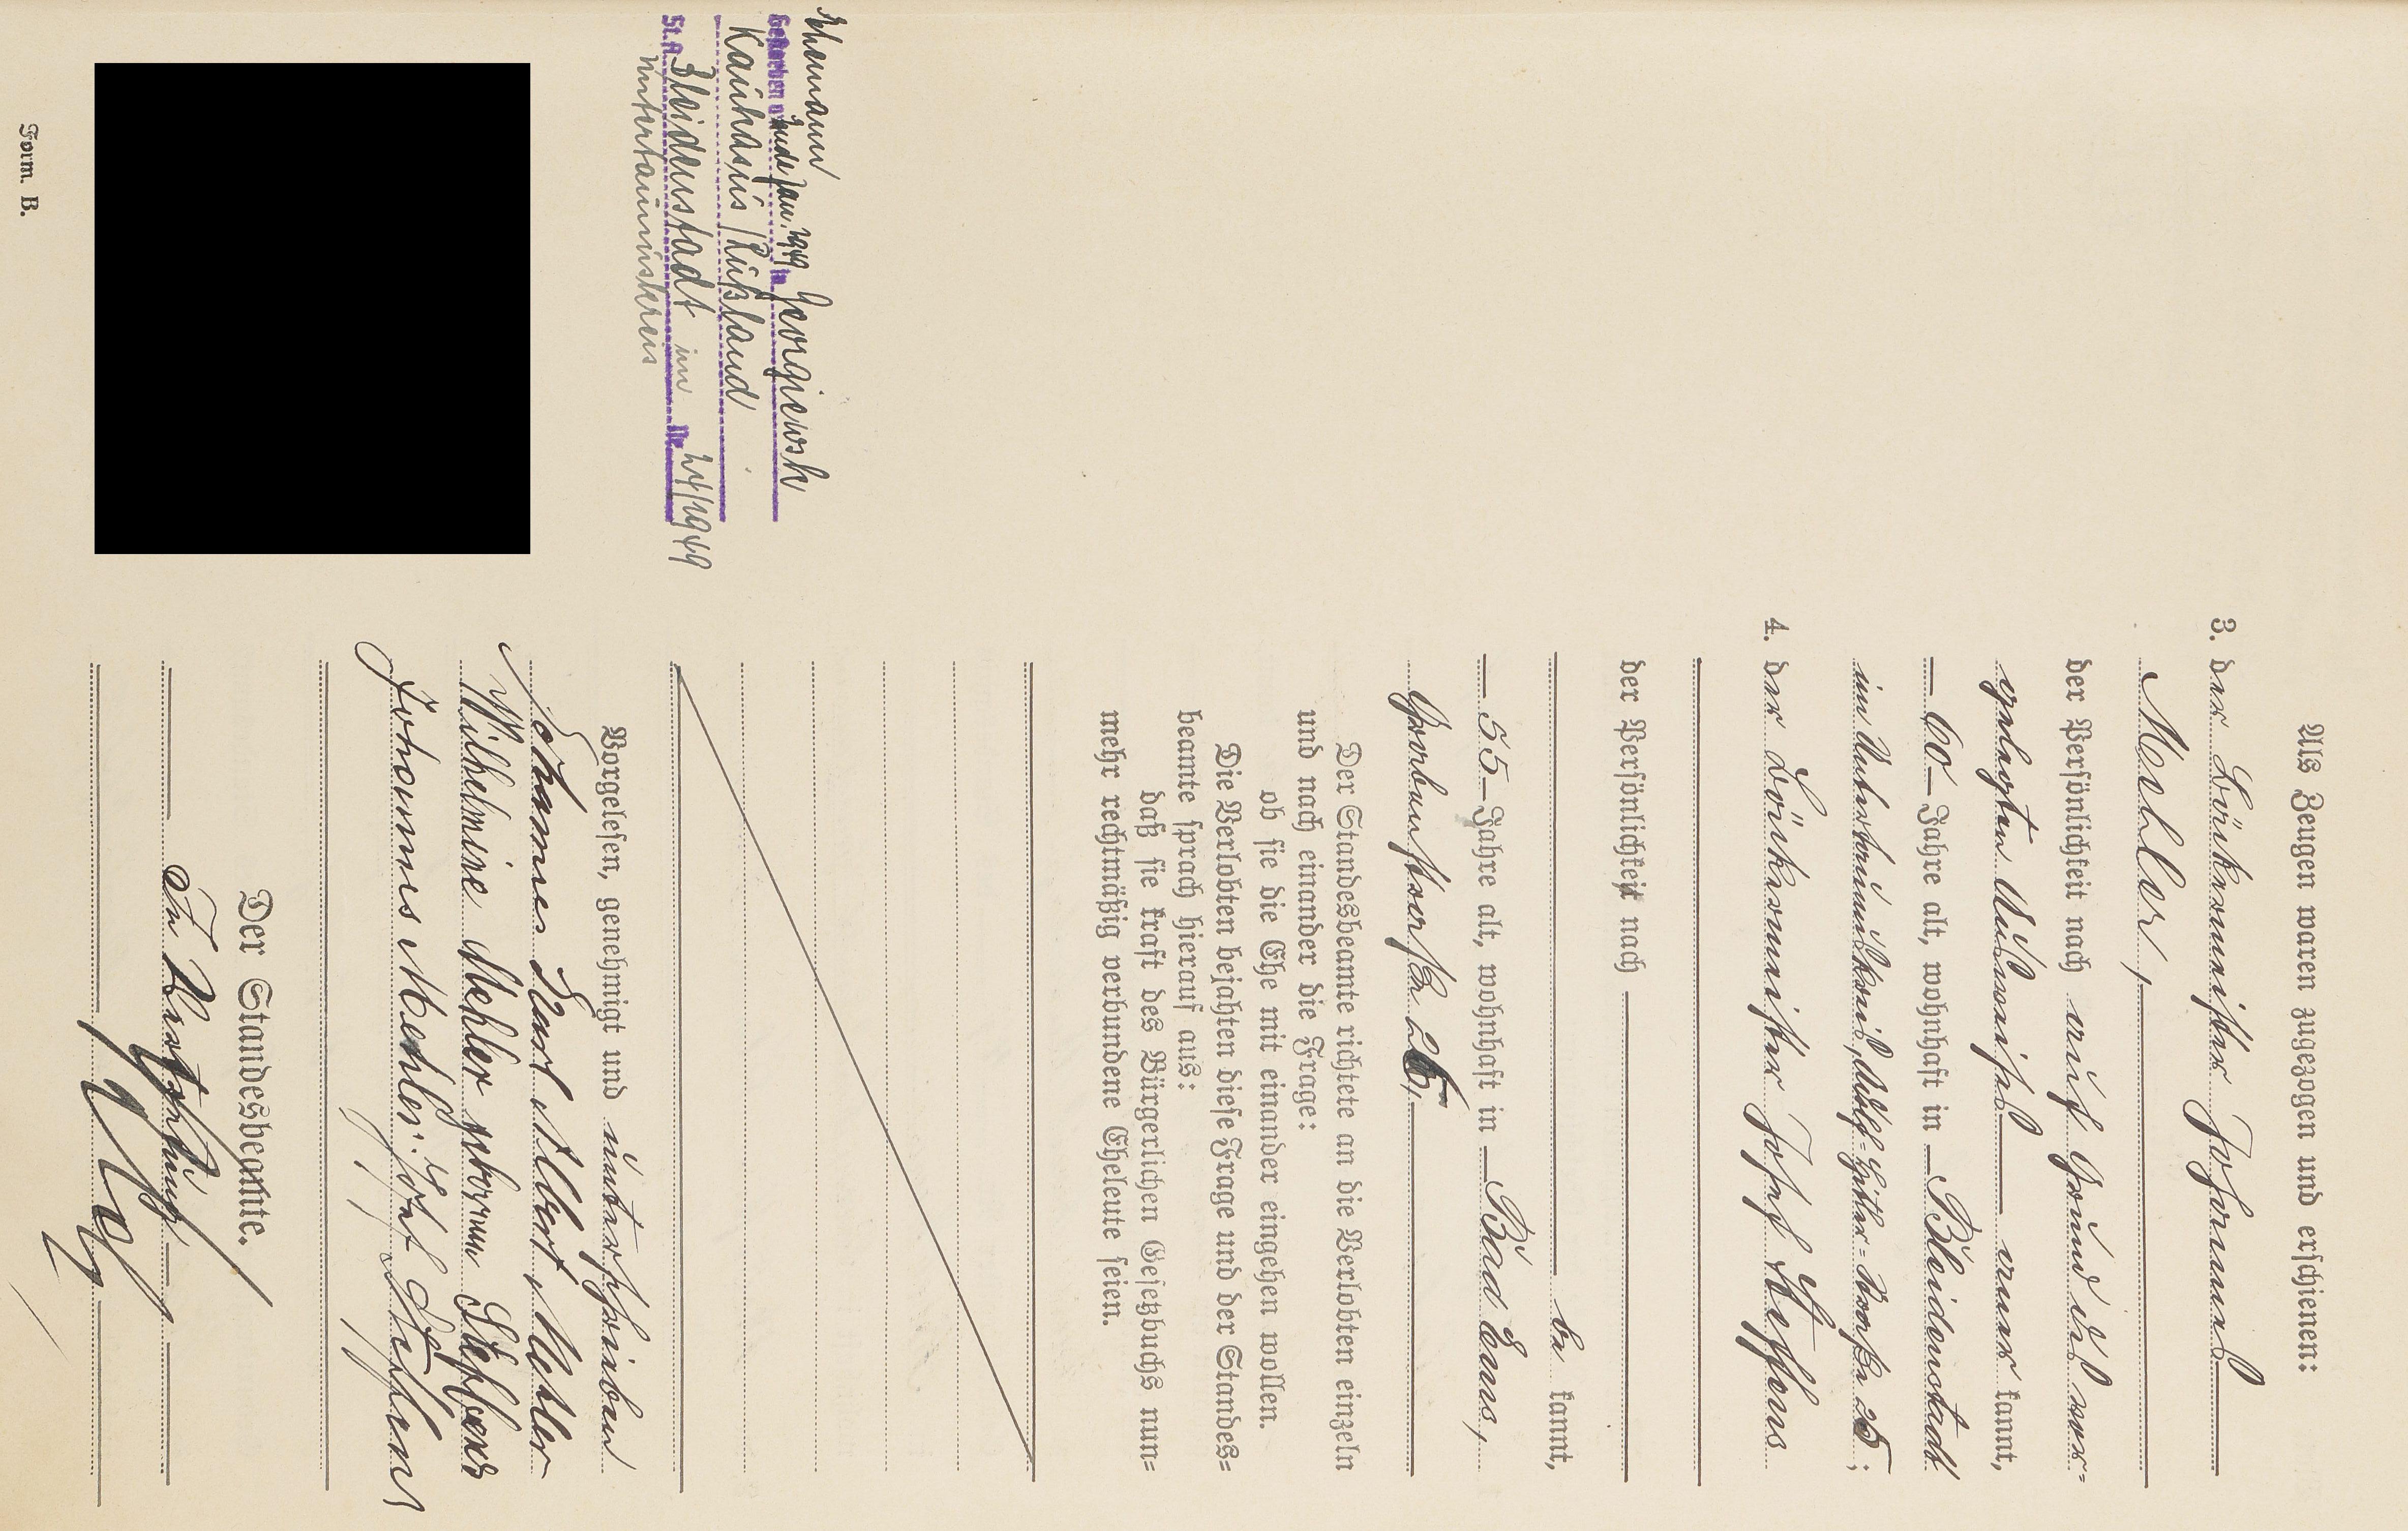 Als Zeugen waren zugezogen und erschienen:
3. der Bäckermeister Johannes
Mehler,
der Persönlichkeit nach auf Grund des vor=
gelegten Ausweises aner kannt,
60 Jahre alt, wohnhaft in Bleidenstadt
im Untertaunuskreis, Adolf-Hitler-Straße 25;
4. der Bäckermeister Josef Steffens
der Persönlichkeit nach
be kannt,
55 Jahre alt, wohnhaft in Bad Ems,
Grabenstraße 26.
Der Standesbeamte richtete an die Verlobten einzeln
und nach einander die Frage:
ob sie die Ehe mit einander eingehen wollen.
Die Verlobten bejahten diese Frage und der Standes=
beamte sprach hierauf aus:
daß sie kraft des Bürgerlichen Gesetzbuchs nun=
mehr rechtmäßig verbundene Eheleute seien.
Vorgelesen, genehmigt und unterschrieben
Johannes Karl Albert Mehler
Wilhelmine Mehler geborene Steffens
Johannes Mehler. Josef Steffens
Der Standesbeamte.
In Vertretung
Ehemann
Gestorben Ende Jan. 1949 in Georgiewsk
Kaukasus/Rußland
St.A. Bleidenstadt im Nr. 24/1949
Untertaunuskreis
Form. B.